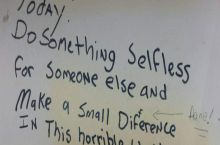 TODAY
Do Something Selfless
for Someone else and
Make a Small Diference
IN This horrible